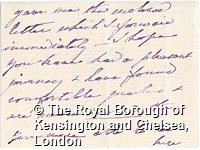 gave me the enclosed
letter which I forward
immediately — I hope
you have had a pleasant
journey & have found
comfortable quarters &
are
here
© The Royal Borough of
Kensington and Chelsea,
London